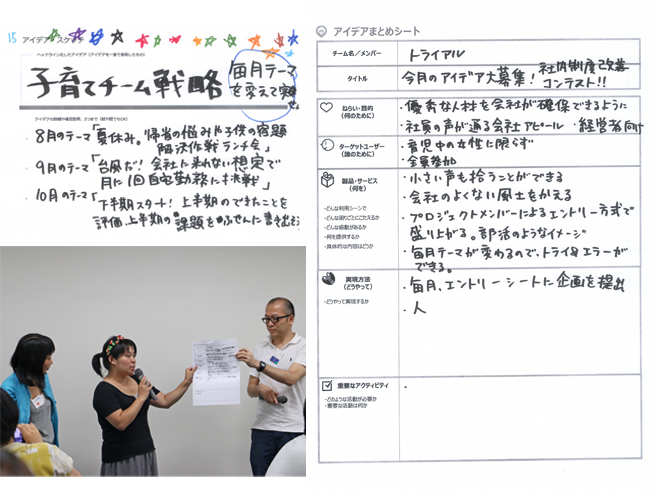 15 アイデアスケッチ
ヘッドラインとしたアイデア(アイデアを一言で表現したもの)
子育てチーム戦略
毎月テーマ
を変えて実
アイデアの詳細や補足説明、3つまで(絵や図でもOK)
・8月のテーマ「夏休み。帰省の悩みや子供の宿題
解決作戦ランチ会」
・9月のテーマ「台風だ!会社に来れない想定で
月に1回自宅勤務に挑戦」
・10月のテーマ「下半期スタート!上半期のできたことを
評価、上半期の課題をふせんに書き出そう
アイデアまとめシート
チーム名/メンバー
トライアル
タイトル
今月のアイデア大募集!社内制度改善
コンテスト!!
ねらい・目的
(何のために)
・優秀な人材を会社が確保できるように
・社員の声が通る会社アピール ・経営者向け
ターゲットユーザー
(誰のために)
・育児中の女性に限らず
・全員参加
製品・サービス
(何を)
・どんな利用シーンで
・どんな困りごとにこたえるか
・どんな価値があるか
・何を提供するか
・具体的な内容はどうか
・小さい声も拾うことができる
・会社のよくない風土をかえる
・プロジェクトメンバーによるエントリー方式で
盛り上がる。部活のようなイメージ
・毎月テーマが変わるので、トライ&エラーが
できる。
実現方法
(どうやって)
・どうやって実現するか
・毎月、エントリーシートに企画を提出
・人
・
重要なアクティビティ
・どのような活動が必要か
・重要な活動は何か
・